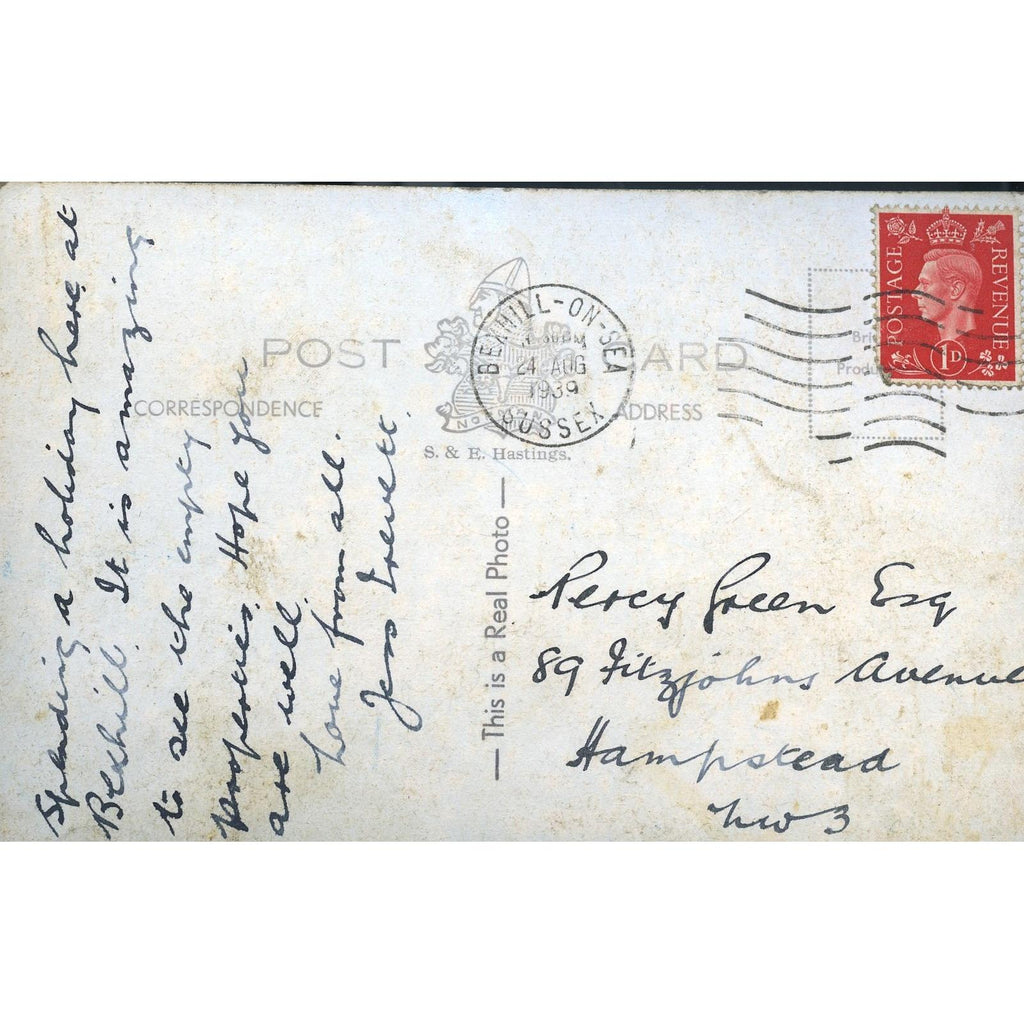 POST CARD
CORRESPONDENCE
ADDRESS
S. & E. Hastings.
This is a Real Photo
BEXHILL-ON-SEA
24 AUG
1939
SUSSEX
POSTAGE
REVENUE
1D
Spending a holiday here at
Bexhill. It is amazing
to see the empty
properties. Hope you
are well.
Love from all.
Jess Trevett
Percy Green Esq
89 Fitzjohns Avenue
Hampstead
NW3